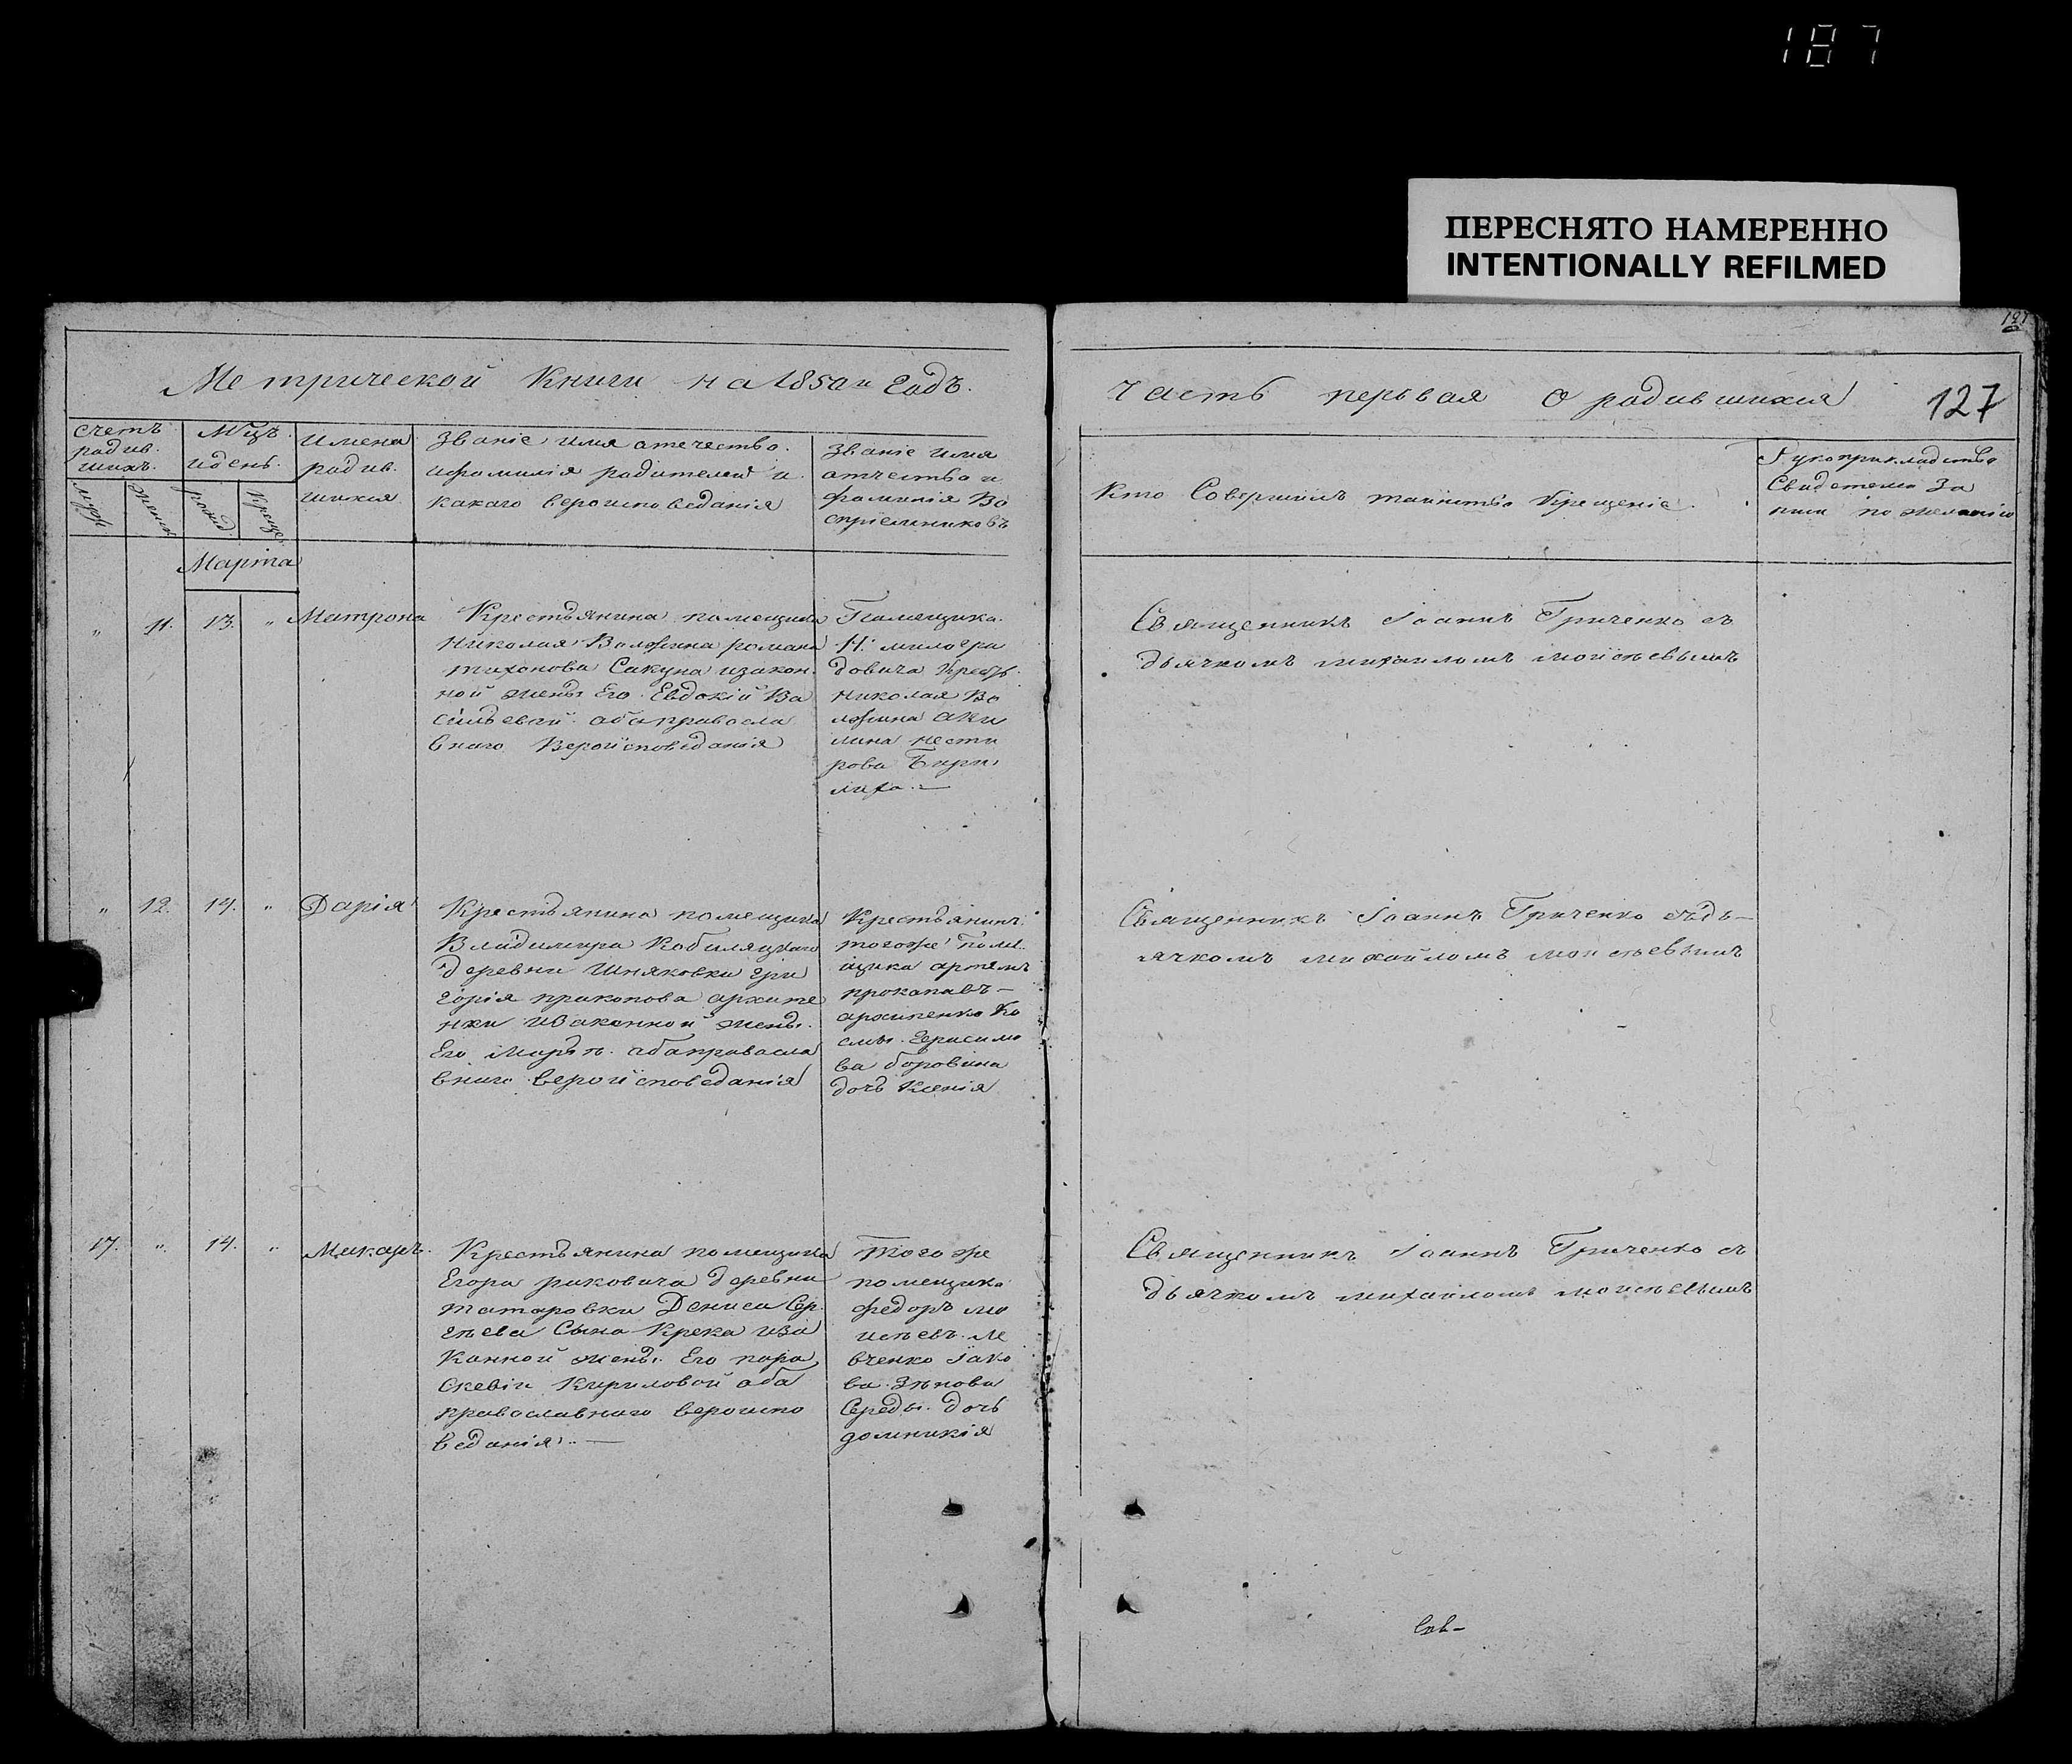 187
ПЕРЕСНЯТО НАМЕРЕННО
INTENTIONALLY REFILMED
Метрической Книги на 1850й Годъ.
счетъ
родив.
шихъ.
Мцъ
идень.
Имена
родив.
шихся
Званіе имя отечество.
ифамилія родителей и
какаго вероисповеданія
Званіе имя
отчество и
фамилія Во
спріемниковъ
Марта
" 11. 13. " Матрона
Крестьянина помещика
Николая Воложина романа
тихонова Сакуна изакон.
ной жены Его Евдокій Ва
сильевой оба правосла
внаго Вероисповеданія
Помещика
Н: милогра
довича
николая Во
ложина Аки
лина нести
рова

" 12. 14. " Дарія
Крестьянина помещика
Владимира Кобиляцкаго
деревни Шняковки гри
горія прокопова архипе
нки изаконной жены
Его оба правосла
внаго вероисповеданія
Крестьянинъ
тогоже поме
щика артемъ
прокопавъ —
архипенко Ко
смы Герасимо
ва боровика
дочь Ксенія
17. " 14. " Макаръ.
Крестьянина помещика
Егора раковича деревни
татаровки Дениса Сер
гѣева Сына Крека иза
конной жены Его пара
скевіи Кириловой оба
православнаго вероиспо
веданія. —
того же
помещика
федоръ мо
исѣевъ ле
вченко Іако
ва Зѣнова
Середы дочь
домникія
часть первая О родившихся
127
Кто Совершилъ таинство Крещеніе
Рукоприкладство
Свидетелей За
писи по желанію
Священникъ Іоаннъ Гриченко съ
дьячкомъ михаиломъ моисѣевымъ
Священникъ Іоаннъ Гриченко съдь—
ячкомъ михаиломъ моисѣевымъ
Священникъ Іоаннъ Гриченко съ
дьячкомъ михаиломъ моисѣевымъ